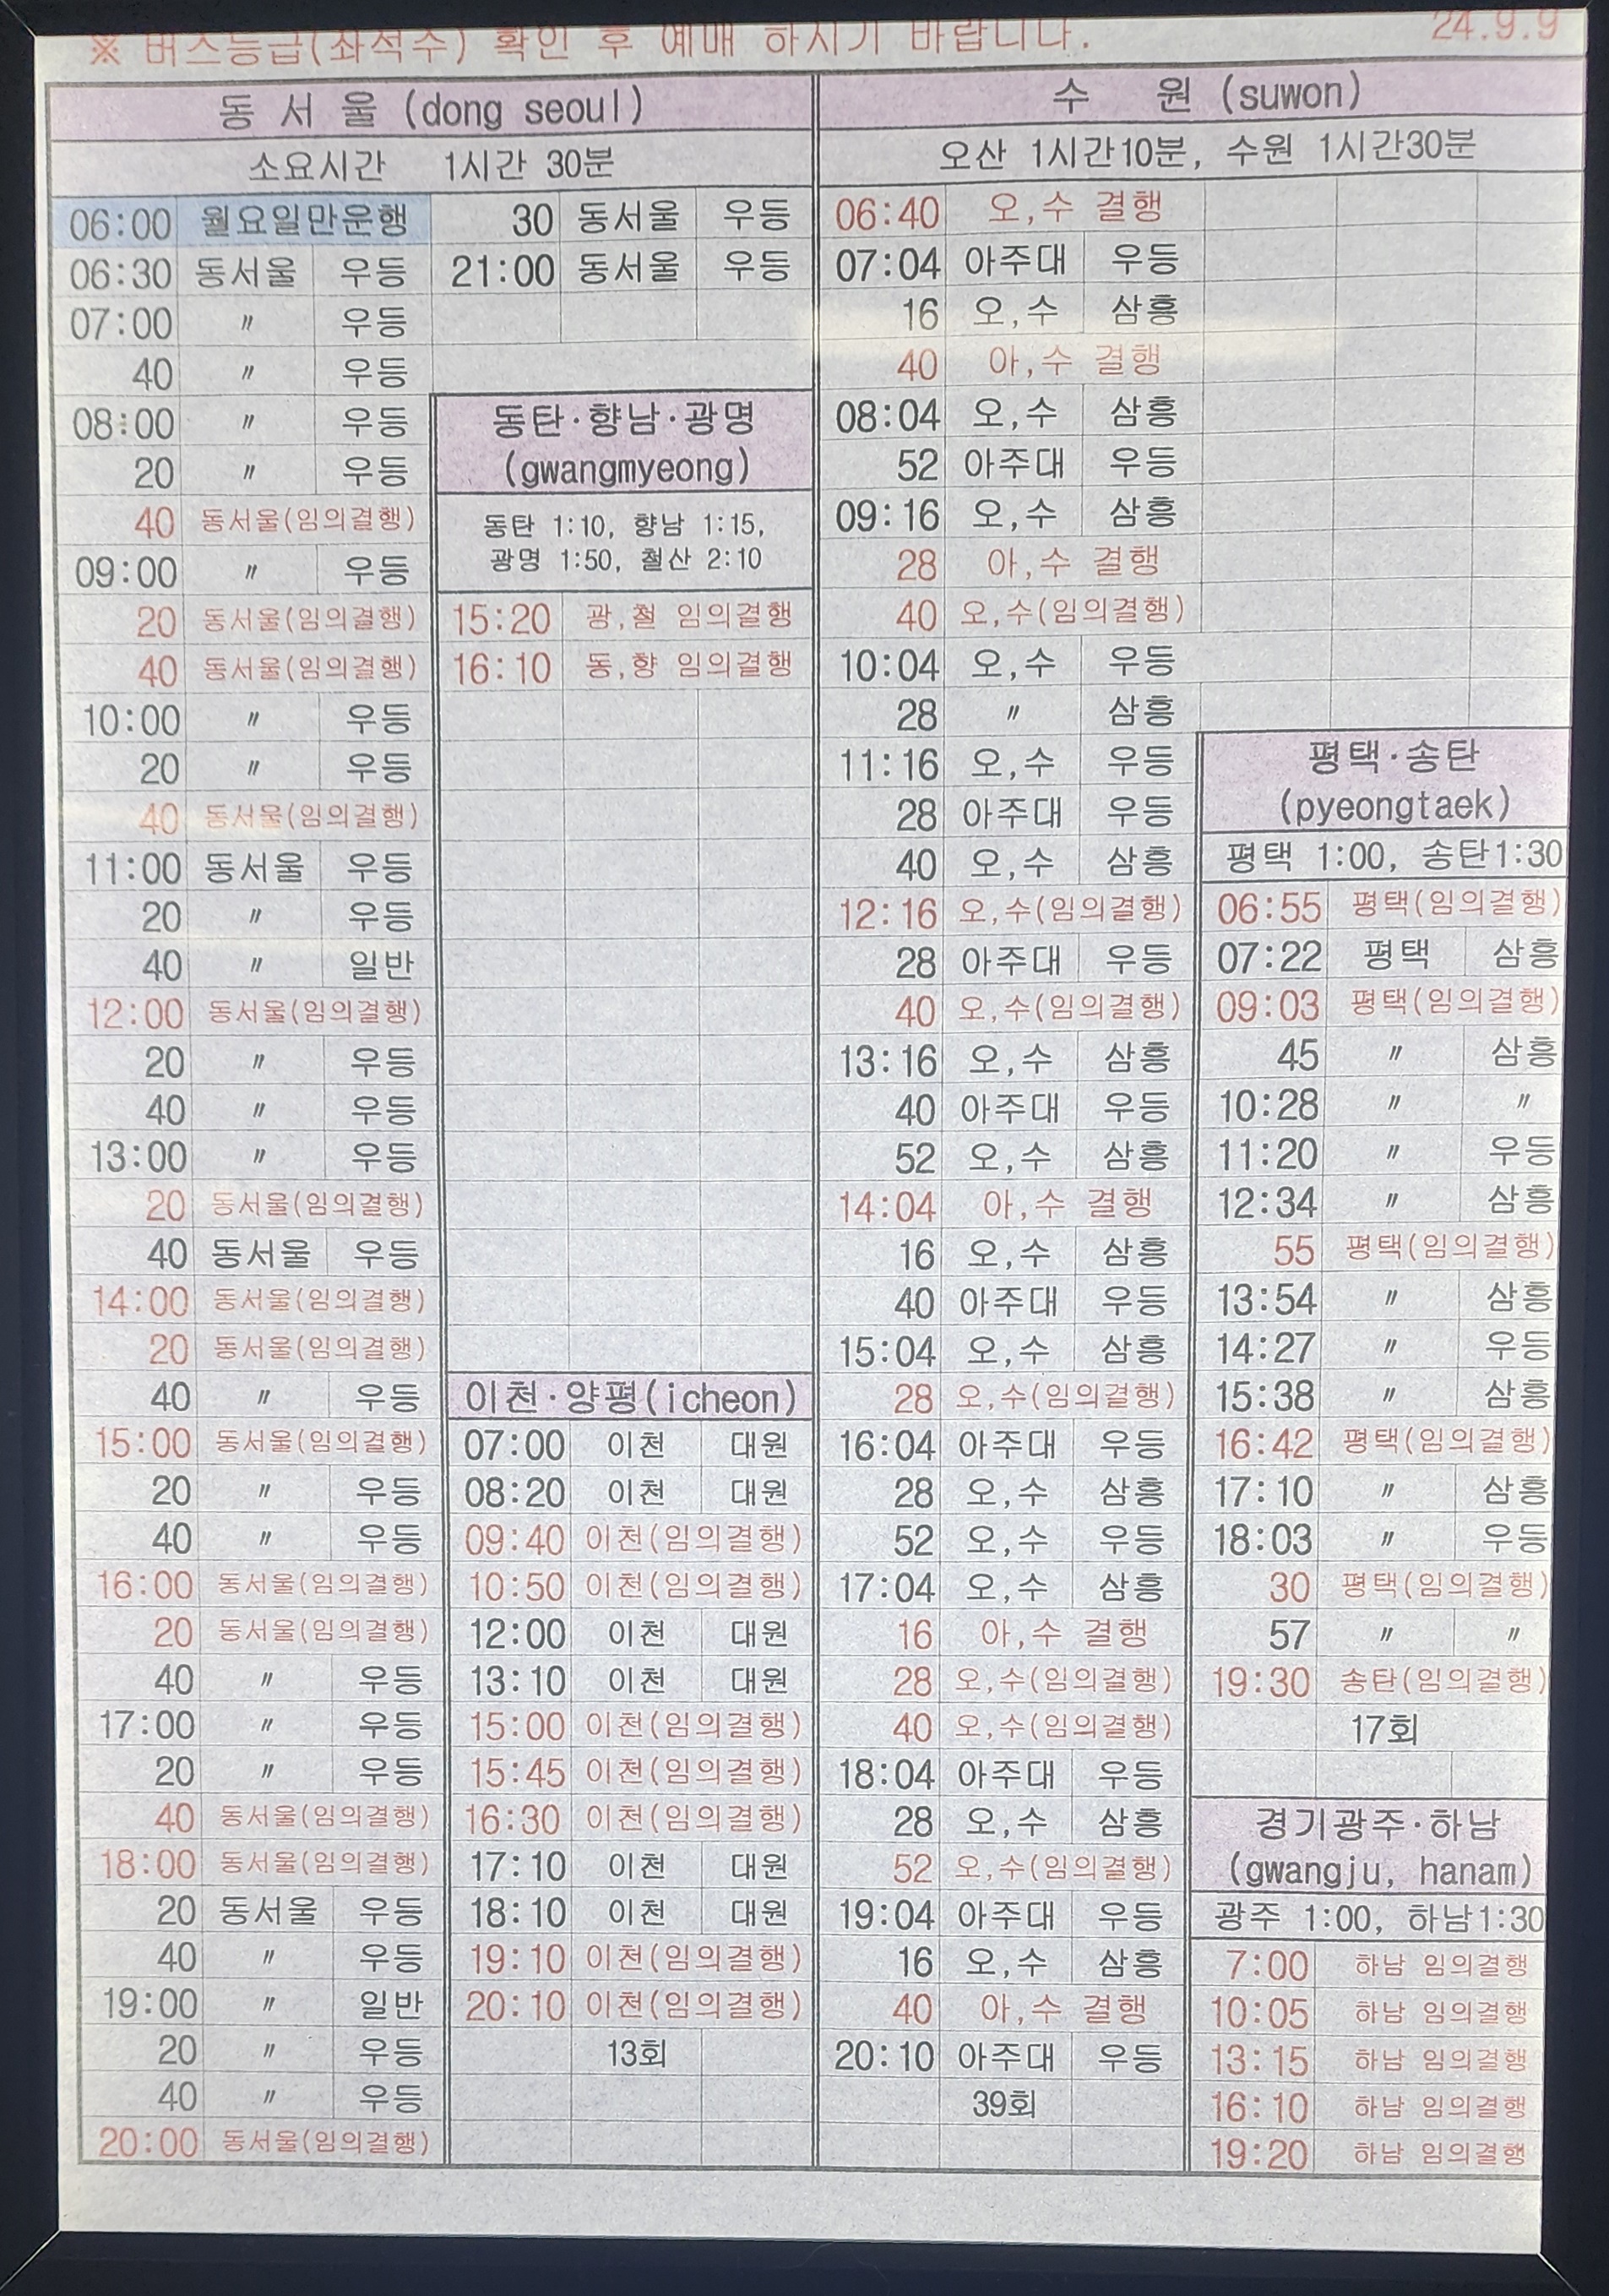 ※ 버스등급(좌석수) 확인 후 예매 하시기 바랍니다.
24.9.9
동 서 울 (dong seoul)
소요시간 1시간 30분
06:00 월요일만운행
06:30 동서울 우등
07:00 〃 우등
40 〃 우등
08:00 〃 우등
20 〃 우등
40 동서울(임의결행)
09:00 〃 우등
20 동서울(임의결행)
40 동서울(임의결행)
10:00 〃 우등
20 〃 우등
40 동서울(임의결행)
11:00 동서울 우등
20 〃 우등
40 〃 일반
12:00 동서울(임의결행)
20 〃 우등
40 〃 우등
13:00 〃 우등
20 동서울(임의결행)
40 동서울 우등
14:00 동서울(임의결행)
20 동서울(임의결행)
40 〃 우등
15:00 동서울(임의결행)
20 〃 우등
40 〃 우등
16:00 동서울(임의결행)
20 동서울(임의결행)
40 〃 우등
17:00 〃 우등
20 〃 우등
40 동서울(임의결행)
18:00 동서울(임의결행)
20 동서울 우등
40 〃 우등
19:00 〃 일반
20 〃 우등
40 〃 우등
20:00 동서울(임의결행)
30 동서울 우등
21:00 동서울 우등
동탄·향남·광명
(gwangmyeong)
동탄 1:10, 향남 1:15,
광명 1:50, 철산 2:10
15:20 광,철 임의결행
16:10 동,향 임의결행
이천·양평(icheon)
07:00 이천 대원
08:20 이천 대원
09:40 이천(임의결행)
10:50 이천(임의결행)
12:00 이천 대원
13:10 이천 대원
15:00 이천(임의결행)
15:45 이천(임의결행)
16:30 이천(임의결행)
17:10 이천 대원
18:10 이천 대원
19:10 이천(임의결행)
20:10 이천(임의결행)
13회
수 원 (suwon)
오산 1시간10분, 수원 1시간30분
06:40 오,수 결행
07:04 아주대 우등
16 오,수 삼흥
40 아,수 결행
08:04 오,수 삼흥
52 아주대 우등
09:16 오,수 삼흥
28 아,수 결행
40 오,수(임의결행)
10:04 오,수 우등
28 〃 삼흥
11:16 오,수 우등
28 아주대 우등
40 오,수 삼흥
12:16 오,수(임의결행)
28 아주대 우등
40 오,수(임의결행)
13:16 오,수 삼흥
40 아주대 우등
52 오,수 삼흥
14:04 아,수 결행
16 오,수 삼흥
40 아주대 우등
15:04 오,수 삼흥
28 오,수(임의결행)
16:04 아주대 우등
28 오,수 삼흥
52 오,수 우등
17:04 오,수 삼흥
16 아,수 결행
28 오,수(임의결행)
40 오,수(임의결행)
18:04 아주대 우등
28 오,수 삼흥
52 오,수(임의결행)
19:04 아주대 우등
16 오,수 삼흥
40 아,수 결행
20:10 아주대 우등
39회
평택·송탄
(pyeongtaek)
평택 1:00, 송탄1:30
06:55 평택(임의결행)
07:22 평택 삼흥
09:03 평택(임의결행)
45 〃 삼흥
10:28 〃 〃
11:20 〃 우등
12:34 〃 삼흥
55 평택(임의결행)
13:54 〃 삼흥
14:27 〃 우등
15:38 〃 삼흥
16:42 평택(임의결행)
17:10 〃 삼흥
18:03 〃 우등
30 평택(임의결행)
57 〃 〃
19:30 송탄(임의결행)
17회
경기광주·하남
(gwangju, hanam)
광주 1:00, 하남1:30
7:00 하남 임의결행
10:05 하남 임의결행
13:15 하남 임의결행
16:10 하남 임의결행
19:20 하남 임의결행